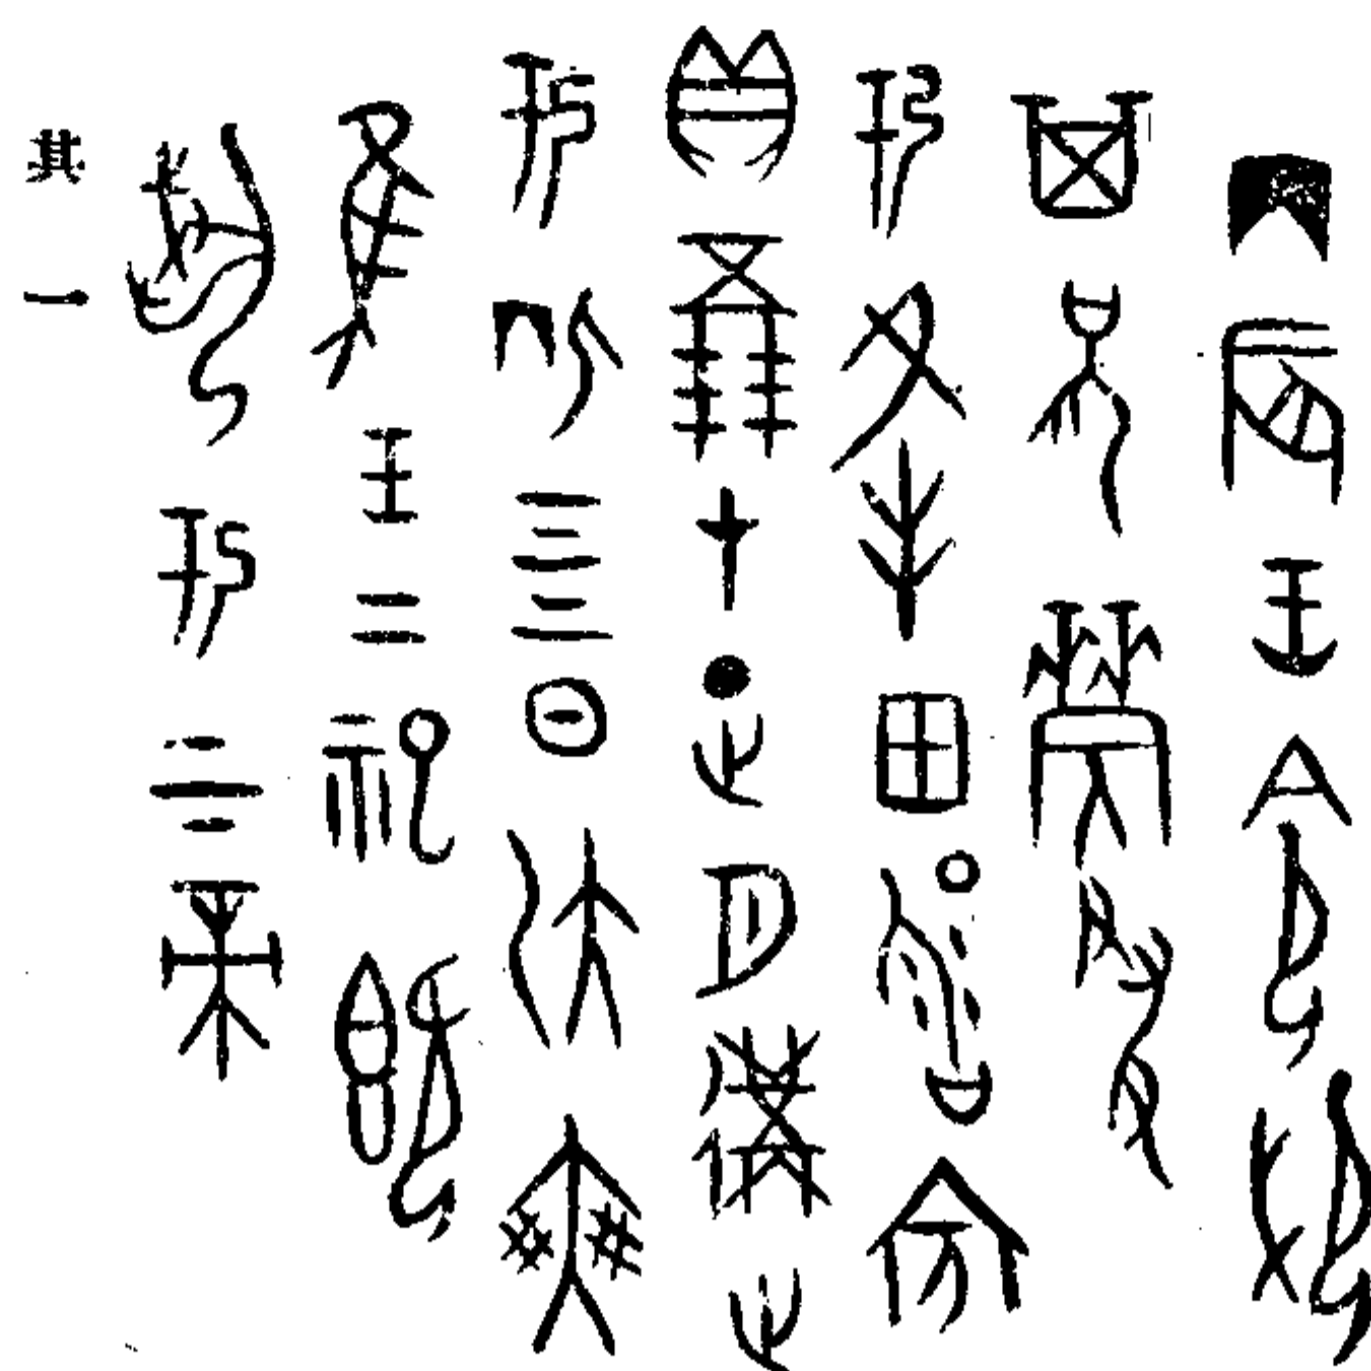 丙辰王令
其兄
于夆田賓
貝五朋才正月遘
于匕丙彡日大乙爽
隹王二祀既
于上下帝
其一